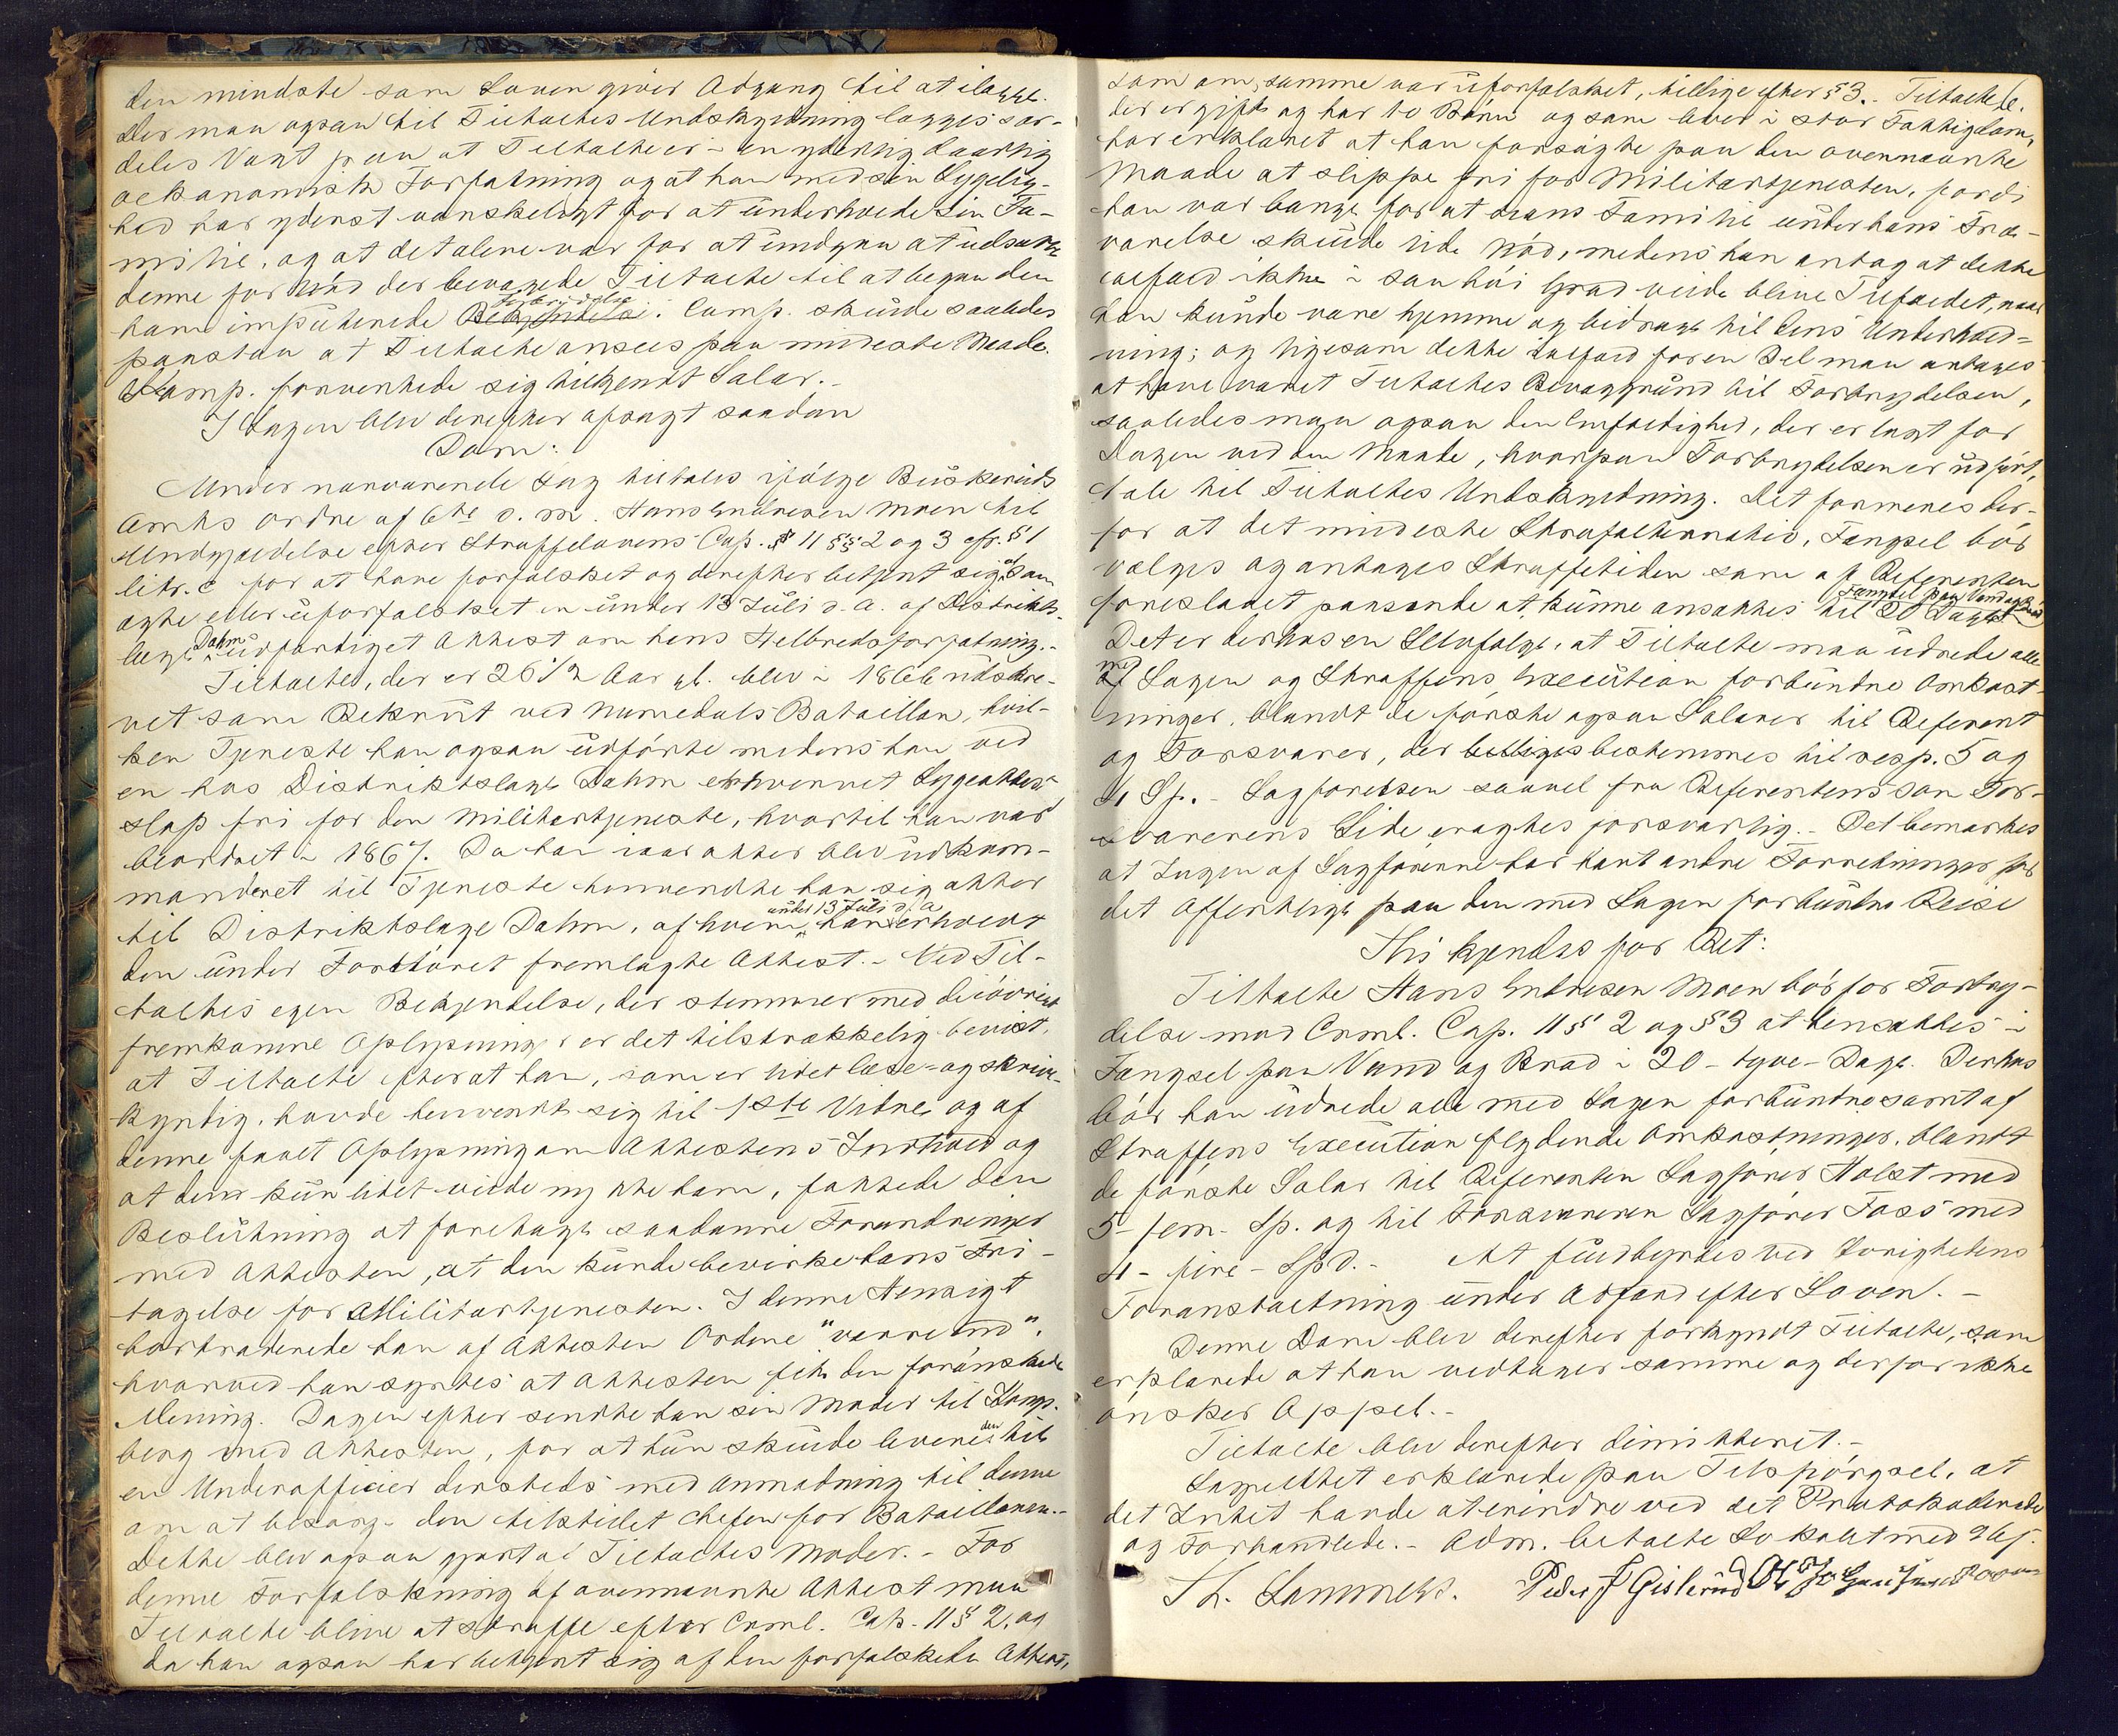 den mindste som Loven giver Adgang til at ilægge.
Der maa ogsaa til Tiltaltes Undskyldning lægges sær-
deles Vægt paa at Tiltalte er i en yderlig daarlig
oekonomisk Forfatning og at han med sin Sygelig-
hed har yderst vanskeligt for at underholde sin Fa-
milie, og at det alene var for at undgaa at udsætte
denne for Nød der bevægede Tiltalte til at begaa den
ham imputerede Forbrydelse. Comp. skulde saaledes
paastaa at Tiltalte ansees paa mildeste Maade.
Komp. forventede sig tilkjendt Salær.-
I Sagen blev derefter afsagt saadan
Dom:
Under nærværende Sag tiltales ifølge Buskeruds
Amts Ordre af 6te d. M. Hans Endresen Moen til
Undgjældelse efter Straffelovens Cap. 11 §§ 2 og 3 cfr. § 1
litr. c for at have forfalsket og derefter betjent sig af som
ægte eller uforfalsket en under 13 Juli d. A. af Distrikts-
læge Dahm udfærdiget Attest om hans Helbredsforfatning.-
Tiltalte, der er 26 1/2 Aar gl. blev i 1866 udskre-
vet som Rekrut ved Numedals Bataillon, hvil-
ken Tjeneste han ogsaa udførte medens han ved
en hos Distriktslæge Dahm erhvervet Sygeattest
slap fri for den Militærtjeneste, hvortil han var
beordret i 1867. Da han iaar atter blev udkom-
manderet til Tjeneste henvendte han sig atter
til Distriktslæge Dahm, af hvem han under 13 Juli d. A. erhvervet
den under Forhøret fremlagte Attest.- Ved Til-
taltes egen Bekjendelse, der stemmer med de øvrige
fremkomne Oplysninger er det tilstrækkelig bevist,
at Tiltalte efterat han, som er lidet læse- og skrive-
kyndig, havde henvendt sig til 1ste Vidne og af
denne faaet Oplysning om Attestens Indhold og
at den kun lidet vilde nytte ham, fattede den
Beslutning at foretage saadanne Forandringer
med Attesten, at den kunde bevirke hans Fri-
tagelse for Militærtjenesten. I denne Hensigt
bortraderede han af Attesten Ordene "værre end",
hvorved han syntes at Attesten fik den forønskede
Mening. Dagen efter sendte han sin Moder til Kongs-
berg med Attesten, for at hun skulde levere den til
en Underofficier dersteds med Anmodning til denne
om at besørge den tilstillet Chefen for Bataillonen.-
Dette blev ogsaa gjort af Tiltaltes Moder.- For
denne Forfalskning af ovennævnte Attest maa
Tiltalte blive at straffe efter Crml. Cap. 11 § 2, og
da han ogsaa har betjent sig af den forfalskede Attest,
som om samme var uforfalsket, tillige efter § 3.- Tiltalte,
der er gift og har to Børn og som lever i stor Fattigdom,
har erklæret at han forsøgte paa den ovennævnte
Maade at slippe fri for Militærtjenesten, fordi
han var bange for at hans Familie under hans Fra-
værelse skulde lide Nød, medens han antog at dette
ialfald ikke i saa høi Grad vilde blive Tilfældet, naar
han kunde være hjemme og bidrage til dens Underhold-
ning; og ligesom dette ialfald for en Del maa antages
at have været Tiltaltes Bevæggrund til Forbrydelsen,
saaledes maa ogsaa den Enfoldighed, der er lagt for
Dagen ved den Maade, hvorpaa Forbrydelsen er udført,
tale til Tiltaltes Undskyldning. Det formenes der-
for at det mildeste Strafalternativ, Fængsel bør
vælges og antages Straffetiden som af Referenten
foreslaaet passende at kunne ansættes til Fængsel paa Vand og Brød 20 Dage
Det er derhos en Selvfølge, at Tiltalte maa udrede alle
med Sagen og Straffens Execution forbundne Omkost-
ninger, blandt de første ogsaa Salærer til Referent
og Forsvarer, der bestemmes til resp. 5 og
4 Sp.- Sagførelsen saavel fra Referentens som For-
svarerens Side eragtes forsvarlig.- Det bemærkes
at Ingen af Sagførerne har havt andre Forretninger for
det Offentlige paa den med Sagen forbundne Reise
Thi kjendes for Ret:
Tiltalte Hans Endresen Moen bør for Forbry-
delse mod Crml. Cap. 11 § 2 og § 3 at hensættes i
Fængsel paa Vand og Brød i 20 - tyve - Dage. Derhos
bør han udrede alle med Sagen forbundne samt af
Straffens Execution flydende Omkostninger, blandt
de første Salær til Referenten Sagfører Holst med
5 - fem - Sp. og til Forsvareren Sagfører Foss med
4 - fire - Spd.- At fuldbyrdes ved Øvrighedens
Foranstaltning under Adfærd efter Loven.-
Denne Dom blev derefter forkyndt Tiltalte, som
erklærede at han vedtager samme og derfor ikke
ønsker Appel.-
Tiltalte blev derefter dimitteret.-
Lagrettet erklærede paa Tilspørgsel, at
det Intet havde at erindre ved det Protokollerede
og Forhandlede.- Adm. betalte Lokalet med
Th. Lammers. Peder J Gislerud